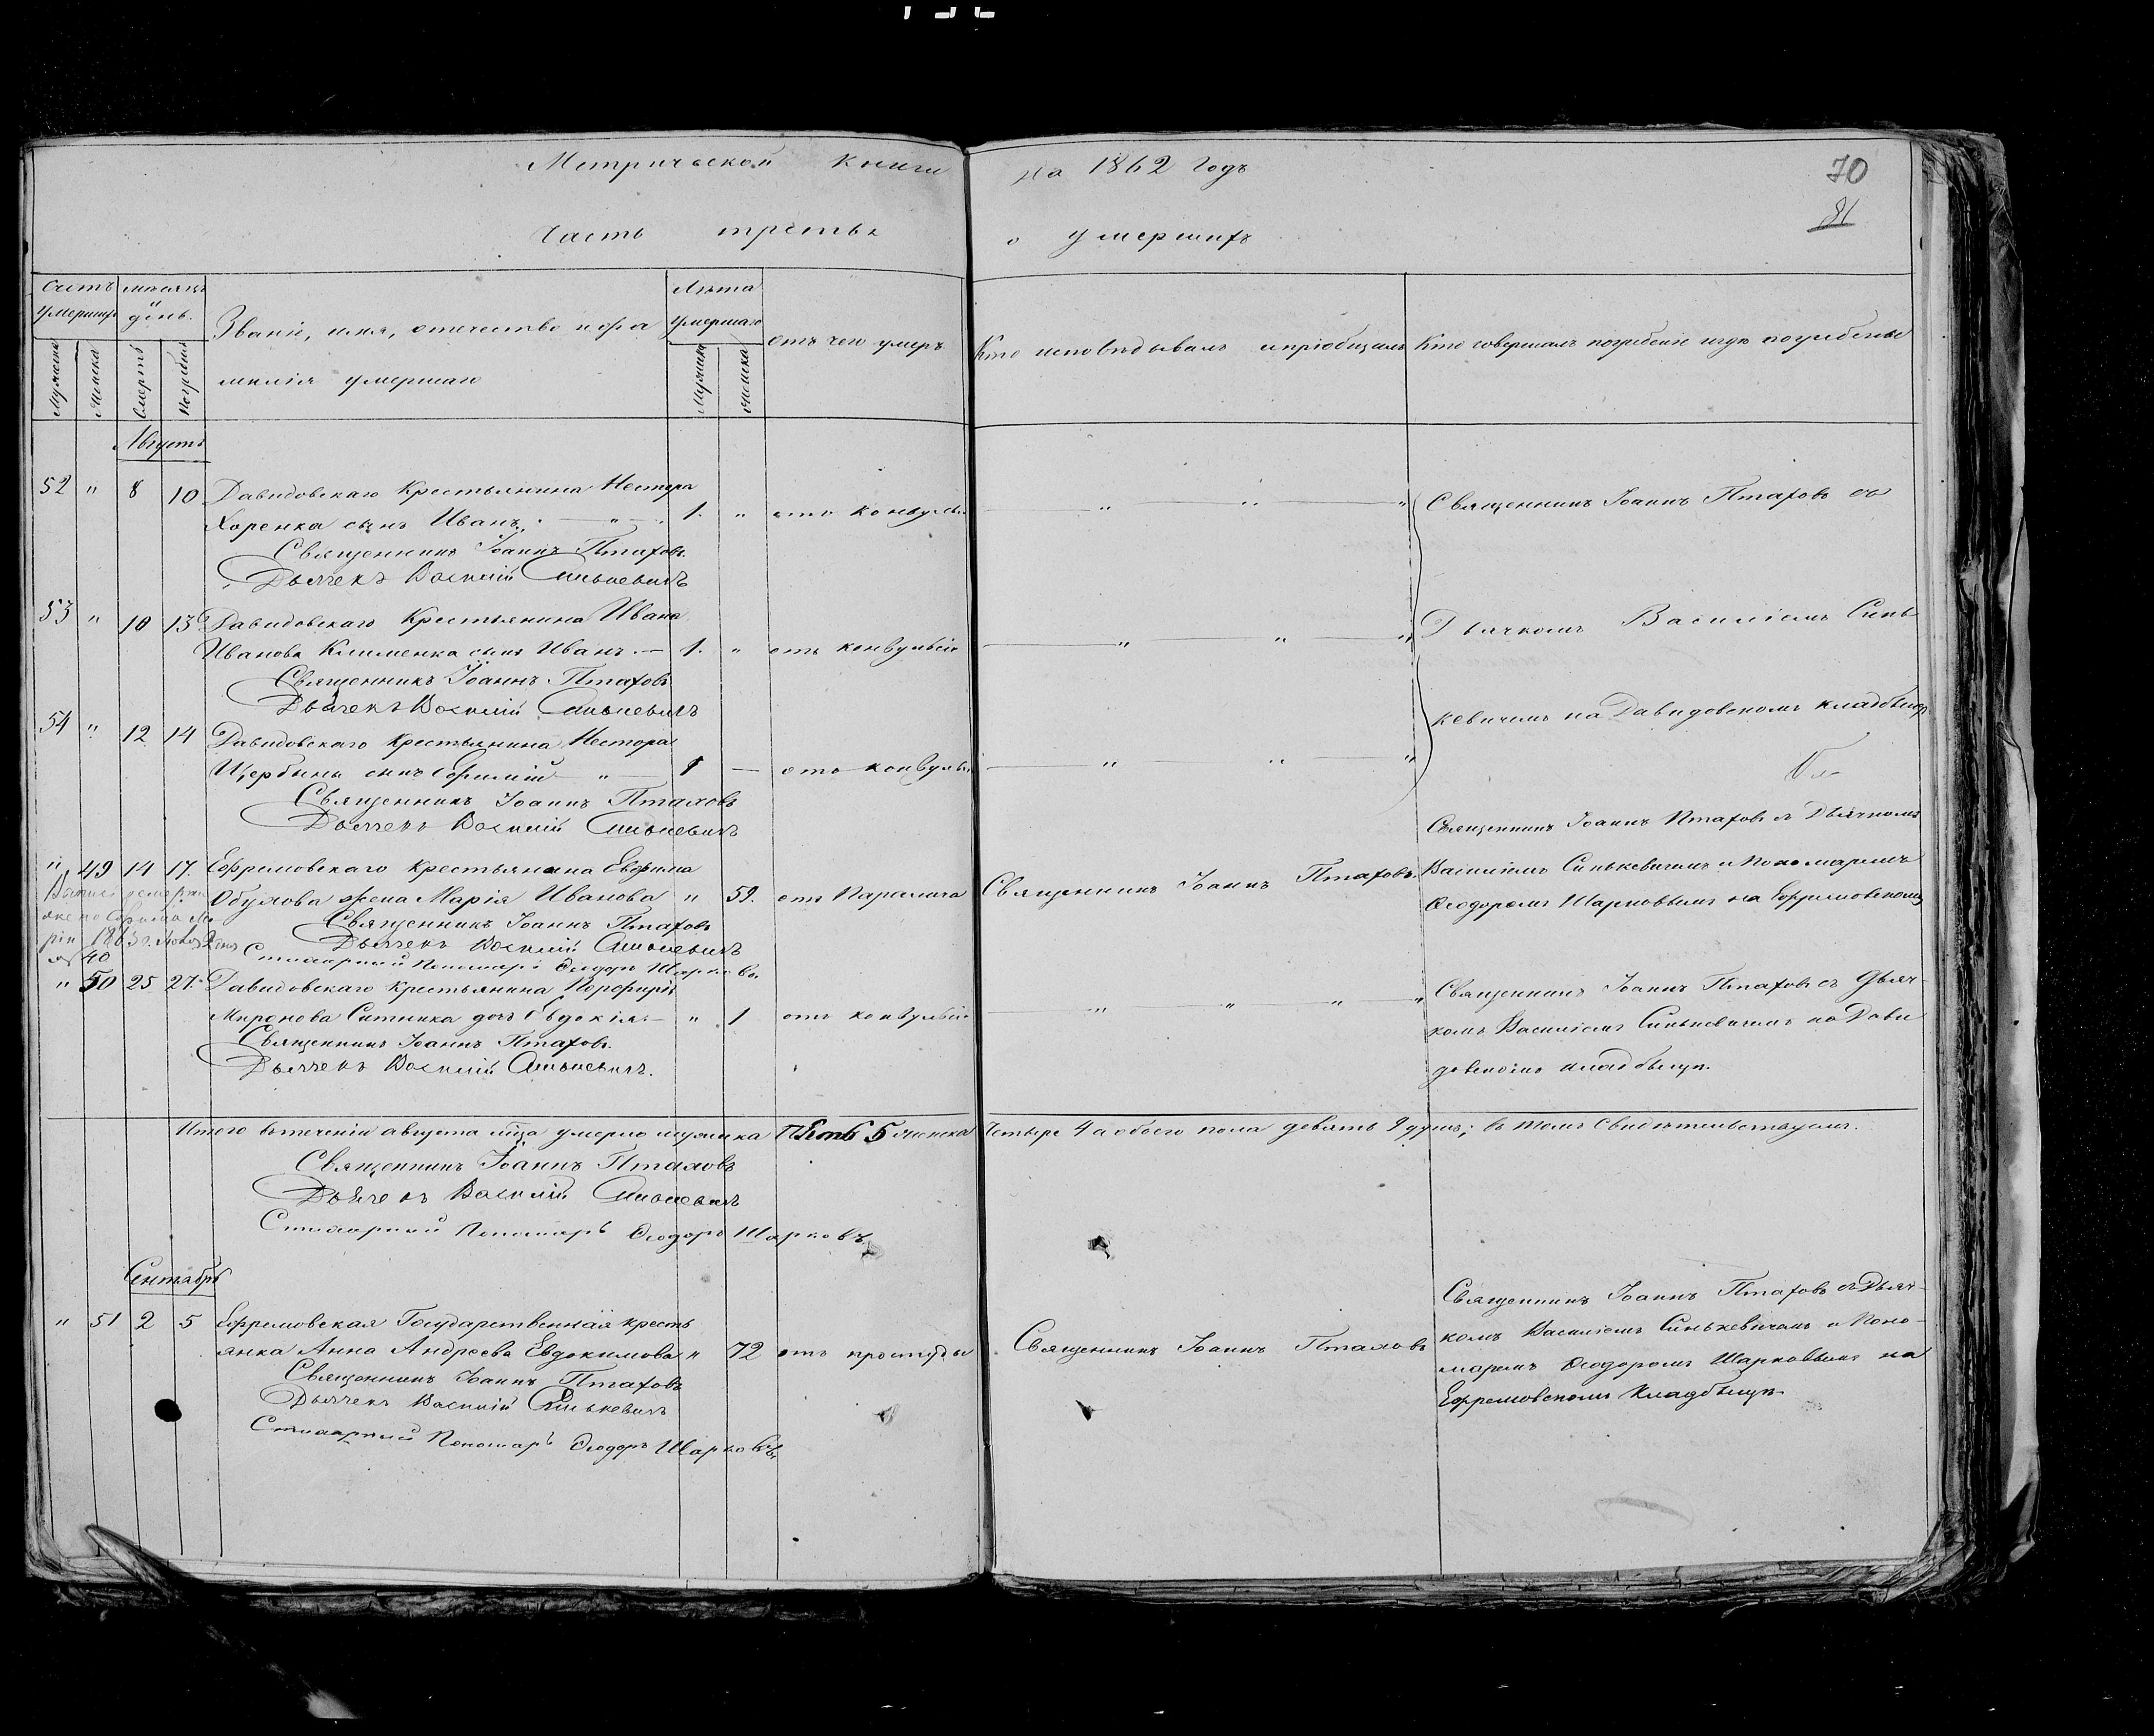 Метрической книги на 1862 Годъ
70
81
Часть третья о умершихъ
Счетъ умершихъ
Мужеска
Женска
Мѣсяцъ и день
Смерти
Погребенія
Званіе, имя, отечество и фа
милія умершаго
Лѣта умершаго
Мужска
Женска
отъ чего умеръ
Кто исповѣдывалъ и пріобщалъ
Кто совершалъ погребеніе и гдѣ погребены
Августъ
52 " 8 10 Давидовскаго Крестьянина Нестора
Хоренка сынъ Иванъ. — " — 1. " отъ конвульсі
Священникъ Іоаннъ Птаховъ.
Дьячекъ Василій Синькевичъ
53 " 10 13 Давидовскаго Крестьянина Ивана
Иванова Клименка сынъ Иванъ. — 1. " отъ конвульсіи
Священникъ Іоаннъ Птаховъ
Дьячекъ Василій Синькевичъ
54 " 12 14 Давидовскаго Крестьянина Нестора
Щербины сынъ Ефимій — " — 1 — отъ конвульс
Священникъ Іоаннъ Птаховъ
Дьячекъ Василій Синькевичъ
Священникъ Іоаннъ Птаховъ съ
Дьячкомъ Василіемъ Синь
кевичемъ на Давидовскомъ кладбищѣ
" 49 14 17. Ефремовскаго крестьянина Евфима
Обухова жена Марія Иванова " 59. отъ Паралича Священникъ Іоаннъ Птаховъ.
Священникъ Іоаннъ Птаховъ
Дьячекъ Василій Синькевичъ
Стихарный Пономарь Ѳеодоръ Шарковъ
Священникъ Іоаннъ Птаховъ съ Дьячкомъ
Василіемъ Синькевичемъ и Пономаремъ
Ѳеодоромъ Шарковымъ на Ефремовскомъ
" 50 25 27. Давидовскаго крестьянина Порфирія
Миронова Ситника дочь Евдокія. — " 1 отъ конвульсіи
Священникъ Іоаннъ Птаховъ.
Дьячекъ Василій Синькевичъ.
Священникъ Іоаннъ Птаховъ съ Дьяч-
комъ Василіемъ Синькевичемъ на Дави
довскомъ кладбищѣ.
Итого въ теченіи августа мца умерло мужска Пять 5 женска Четыре 4 а обоего пола девять 9 душъ; въ томъ Свидѣтельствуемъ.
Священникъ Іоаннъ Птаховъ
Дьячекъ Василій Синькевичъ
Стихарный Пономарь Ѳеодоръ Шарковъ
Сентябрь
" 51 2 5 Ефремовская Государственная кресть
янка Анна Андреева Евдокимова " 72 отъ простуды Священникъ Іоаннъ Птаховъ
Священникъ Іоаннъ Птаховъ
Дьячекъ Василій Синькевичъ
Стихарный Пономарь Ѳеодоръ Шарковъ
Священникъ Іоаннъ Птаховъ съ Дьяч-
комъ Василіемъ Синькевичемъ и Поно-
маремъ Ѳеодоромъ Шарковымъ на
Ефремовскомъ Кладбищѣ.